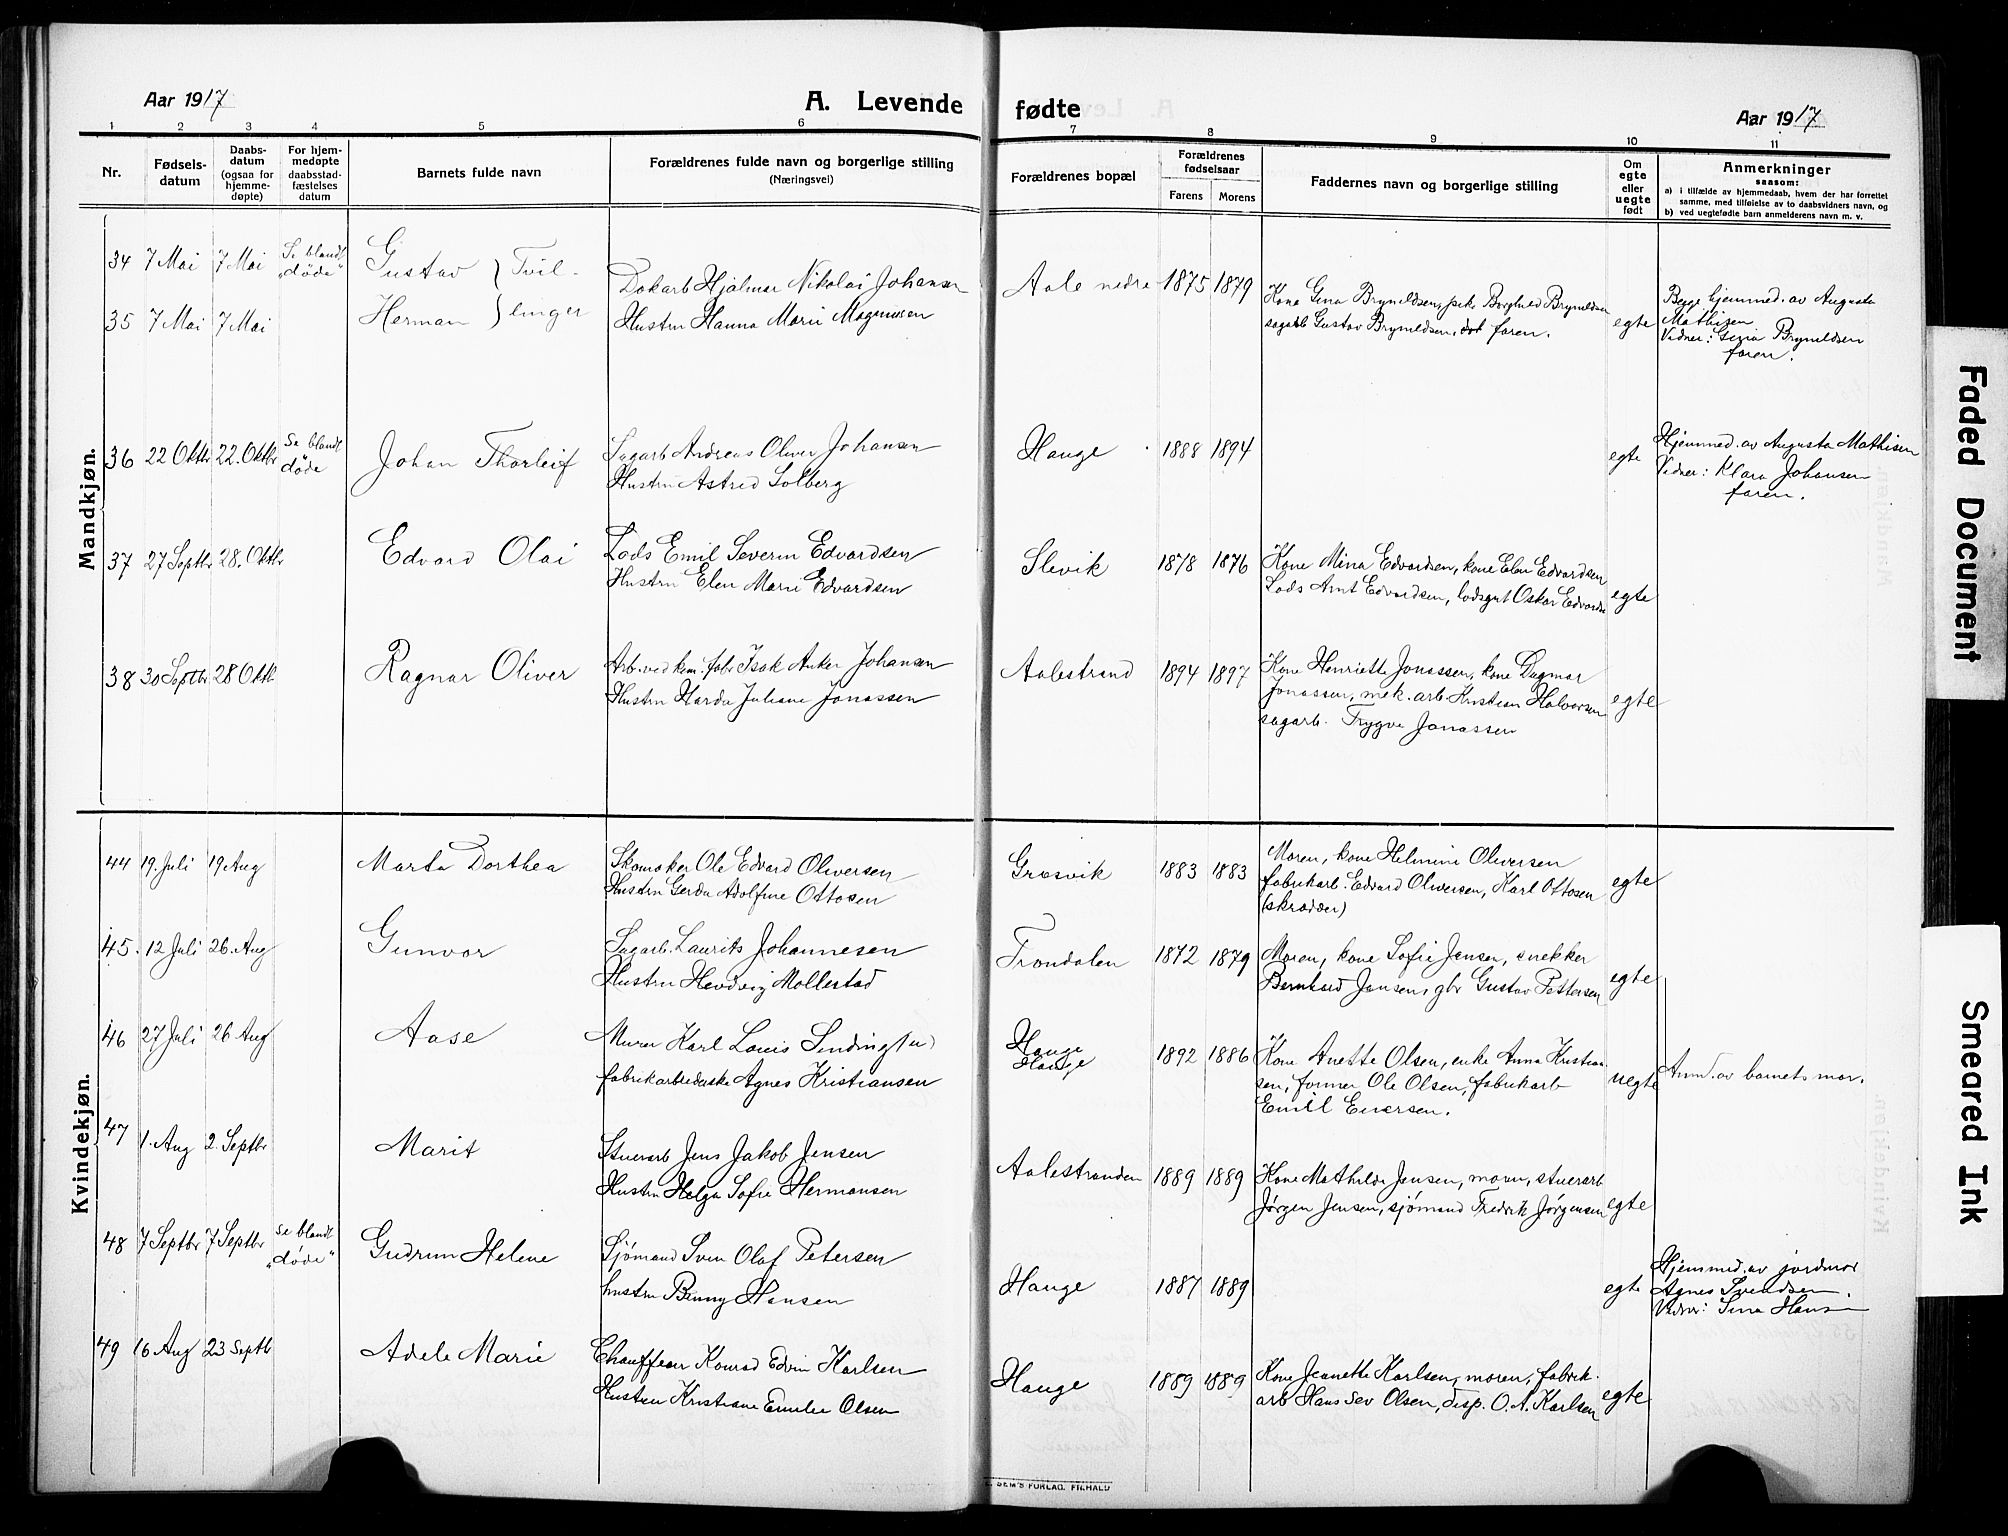 Aar 1917
A. Levende fødte
Aar 1917
1 2 3 4 5 6 7 8 9 10 11
Nr.
Fødsels-
datum
Daabs-
datum
(ogsaa for
hjemme-
døpte)
For hjem-
medøpte
daabsstad-
fæstelses
datum
Barnets fulde navn
Forældrenes fulde navn og borgerlige stilling
(Næringsvei)
Forældrenes bopæl
Forældrenes
fødselsaar
Farens Morens
Faddernes navn og borgerlige stilling
Om
egte
eller
uegte
født
Anmerkninger
saasom:
a) i tilfælde av hjemmedaab, hvem der har forrettet
samme, med tilføielse av to daabsvidners navn, og
b) ved uegtefødte barn anmelderens navn m. v.
Mandkjøn.
34 7 Mai 7 Mai Se blandt
"døde"
Gustav } Tvil-
35 7 Mai 7 Mai Herman } linger
Dokarb Hjalmar Nikolai Johansen
Hustru Hanna Marie Magnussen
Aale nedre 1875 1879
Kone Gina Bryneldsen, pike Borghild Bryneldsen
sagarb Gustav Bryneldsen, faren.
egte
Begge hjemmed. av Augusta
Mathisen
Vidner: Gina Bryneldsen
faren.
36 22 Oktbr 22. Oktbr Se blandt
døde
Johan Thorleif
Sagarb Andreas Oliver Johansen
Hustru Astrid Solberg
Hauge 1888 1894
egte
Hjemmed. av Augusta Mathisen
Vidner: Klara Johansen
faren.
37 27 Septbr 28. Oktbr
Edvard Olai
Lods Emil Severin Edvardsen
Hustru Elen Marie Edvardsen
Slevik 1878 1876
Kone Mina Edvardsen, kone Elen Edvardsen
Lods Arnt Edvardsen, lodsgut Oskar Edvards
egte
38 30 Septbr 28 Oktb
Ragnar Oliver
Arb. ved kem. fabr Isak Anker Johansen
Hustru Harda Juliane Jonassen
Aalestrand 1894 1897
Kone Henriette Jonassen, kone Dagmar
Jonassen, mek. arb. Kristian Halvorsen
sagarb. Trygve Jonassen
egte
Kvindekjøn.
44 19. Juli 19 Aug
Marta Dorthea
Skomaker Ole Edvard Oliversen
Hustru Gerda Adolfine Ottosen
Græsvik 1883 1883
Moren, kone Helmine Oliversen
fabrikarb. Edvard Oliversen, Karl Ottosen
(skrædder)
egte
45. 12 Juli 26. Aug
Gunvor
Sagarb. Laurits Johannesen
Hustru Hendvig Mollestad
Trondalen 1872 1879
Moren, kone Sofie Jensen, snekker
Bernhard Jansen, gbr Gustav Pettersen
egte
46 27 Juli 26 Aug
Aase
Murer Karl Louis Sinding(u)
fabrikarbederske Agnes Kristiansen
Hauge
Hauge 1892 1886
Kone Anette Olsen, enke Anna Kristian
sen, former Ole Olsen, fabrikarb
Emil Enersen.
uegte
Anm. av barnets mor.
47 1. Aug 2. Septbr
Marit
Stuerarb Jens Jakob Jensen
Hustru Helga Sofie Hermansen
Aalestranden 1889 1889
Kone Mathilde Jensen, moren, stuerarb
Jørgen Jensen, sjømand Fredrik Jørgensen
egte
48 7 Septbr 7 Septbr Se blandt
"døde"
Gudrun Helene
Sjømand Sven Olaf Petersen
hustru Benny Hansen
Hauge 1887 1889
egte
Hjemmed. av jordmor
Agnes Svendsen.
Vidner: Sina Hans
49 16 Aug 23 Septb
Adele Marie
Chauffeur Konrad Edvin Karlsen
Hustru Kristiane Emilie Olsen
Hauge 1889 1889
Kone Jeanette Karlsen, moren, fabrik-
arb Hans Sev Olsen, disp. O. A. Karlsen
egte
SEM'S FORLAG, FR.HALD
Faded Document
Smeared Ink